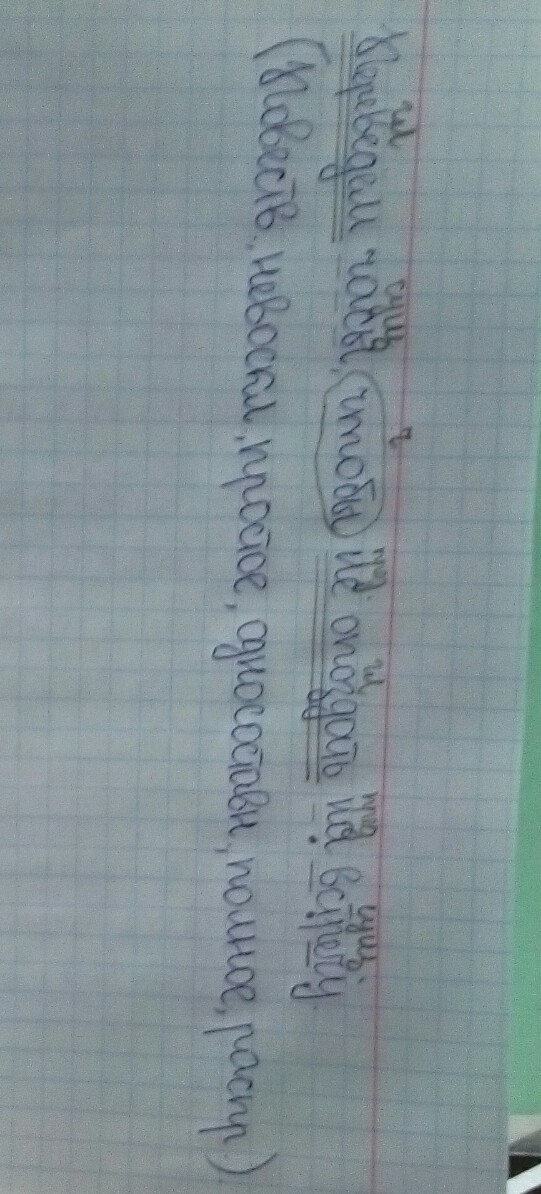 гл. сущ. ч пред. гл. пред сущ.
Переведем часы, чтобы не опоздать на встречу.
(Повеств., невоскл., простое, односоставн., полное, распр.)